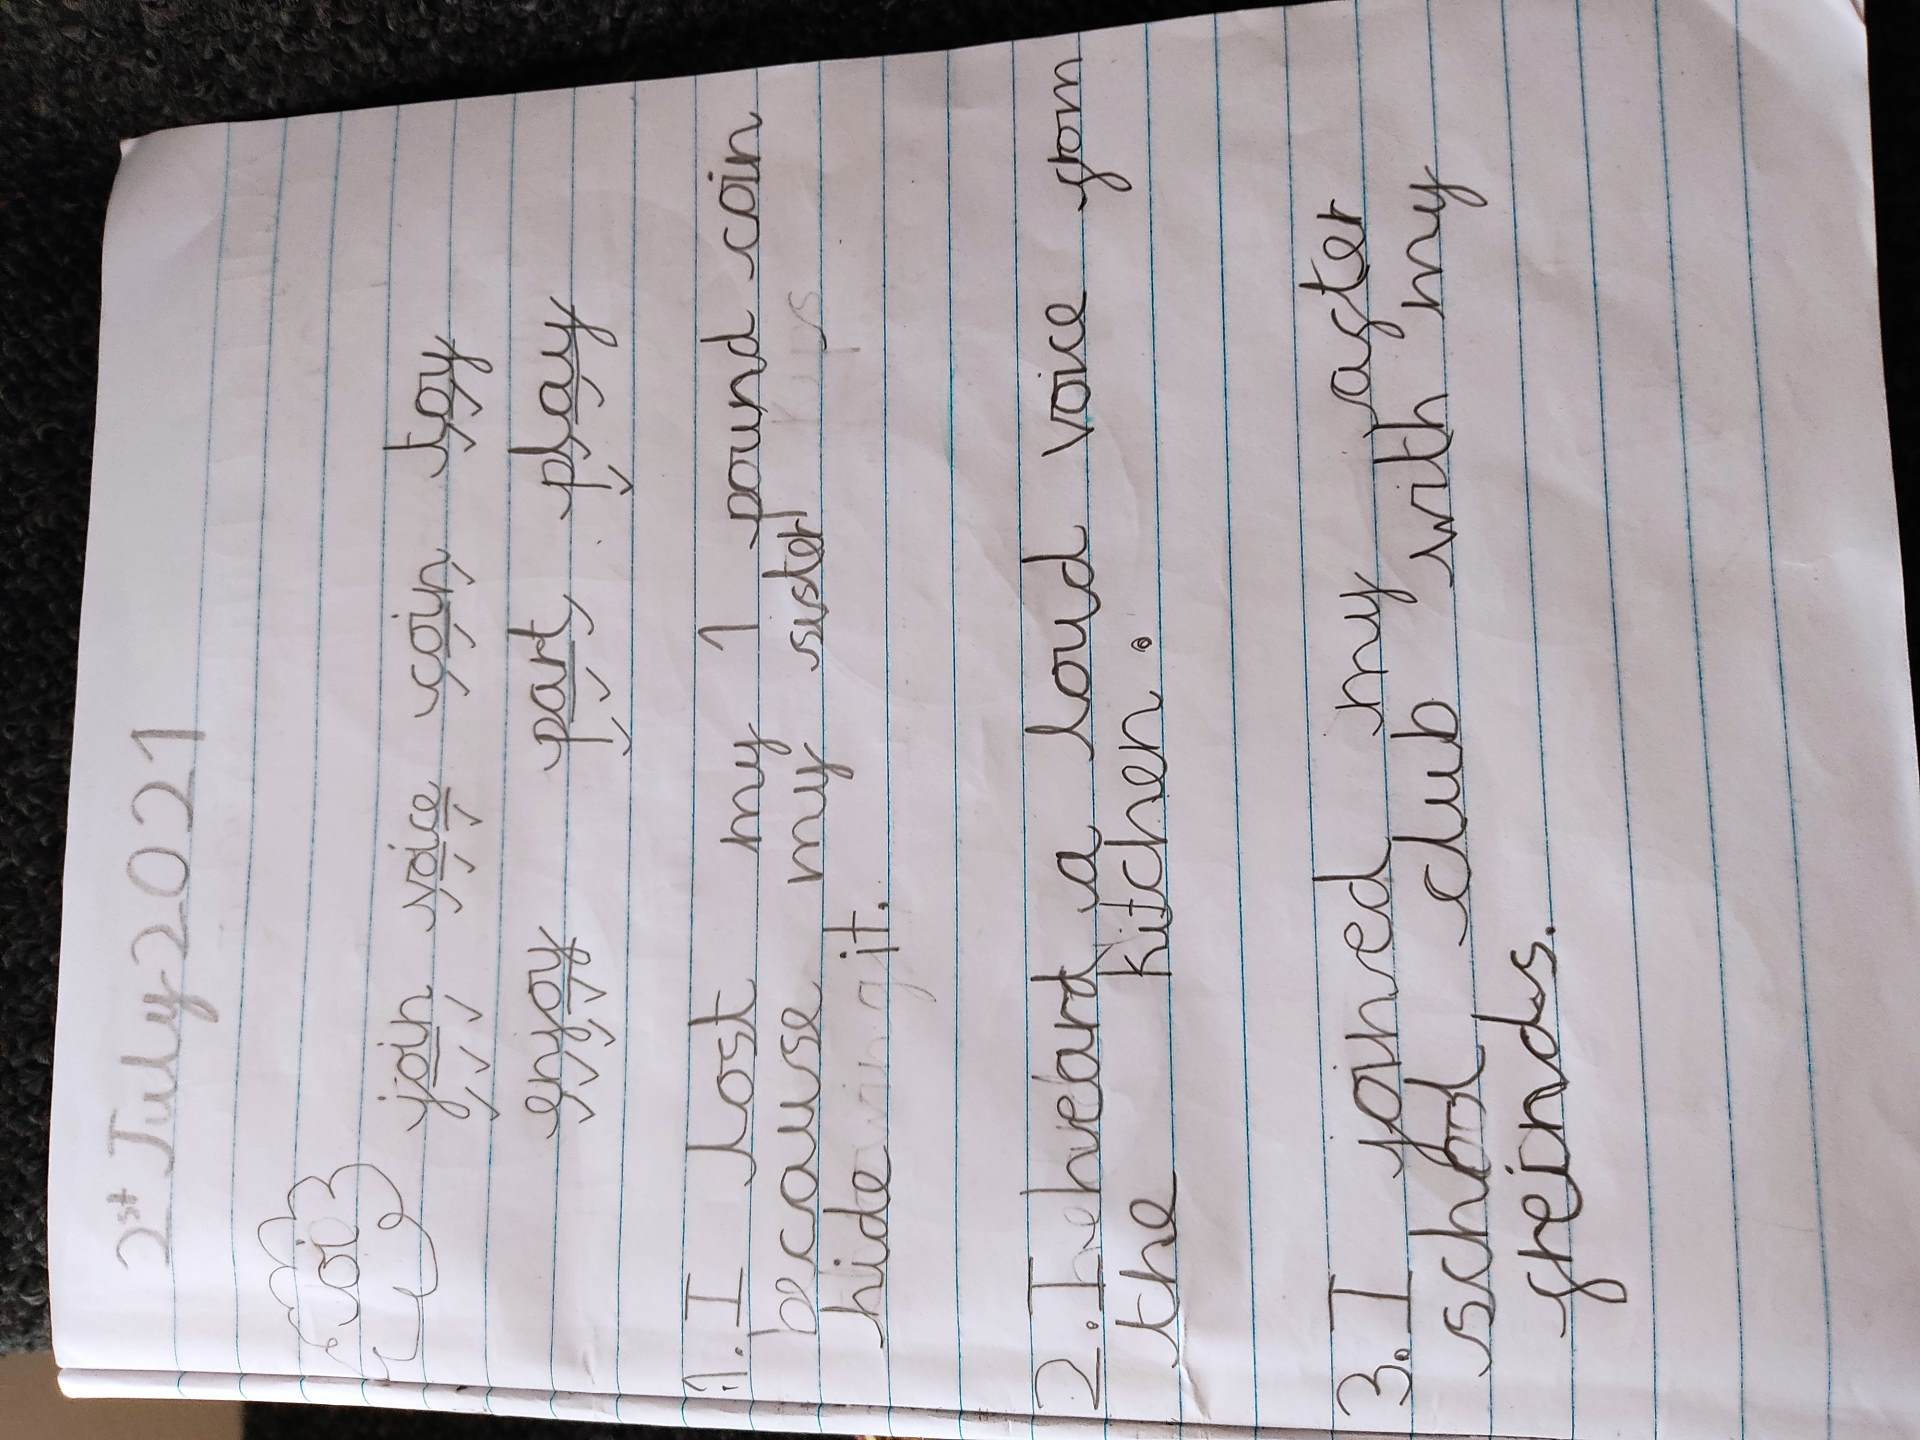 2st July 2021
oi
join voice coin toy
enjoy part play
1. I lost my 1 pound coin
because my sister
hide it.
2. I heard a loud voice from
the kitchen.
3. I joined my after
school club with my
freinds.